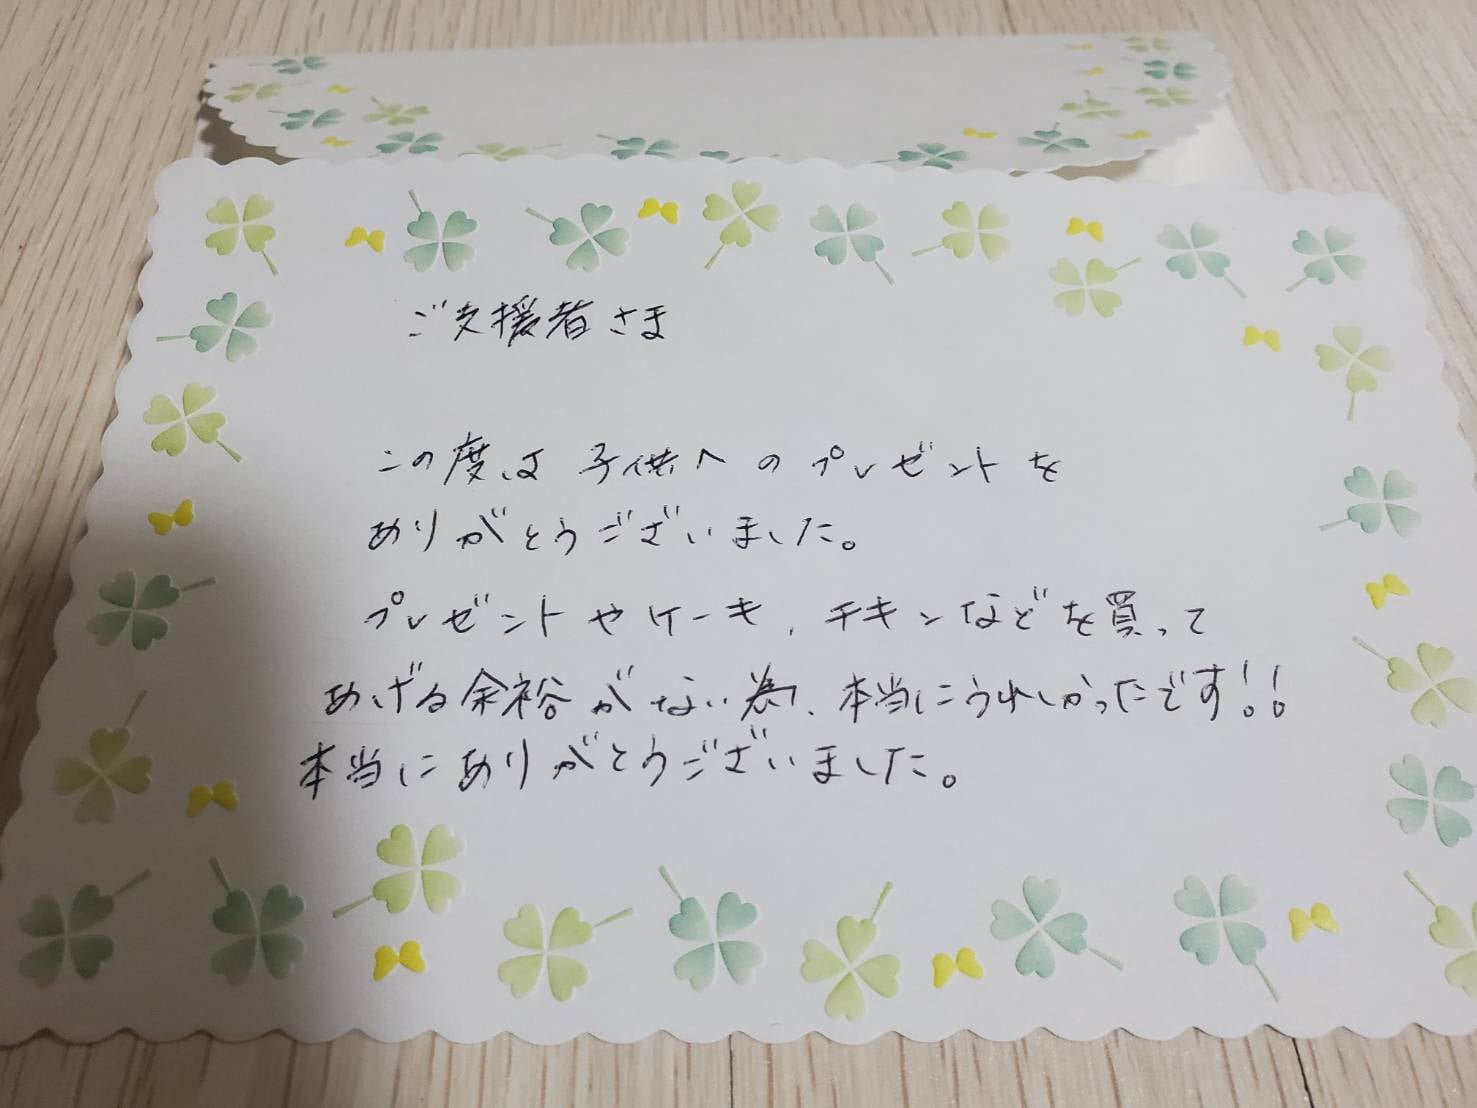 ご支援者さま
この度は子供へのプレゼントを
ありがとうございました。
プレゼントやケーキ、チキンなどを買って
あげる余裕がない為、本当にうれしかったです!!
本当にありがとうございました。